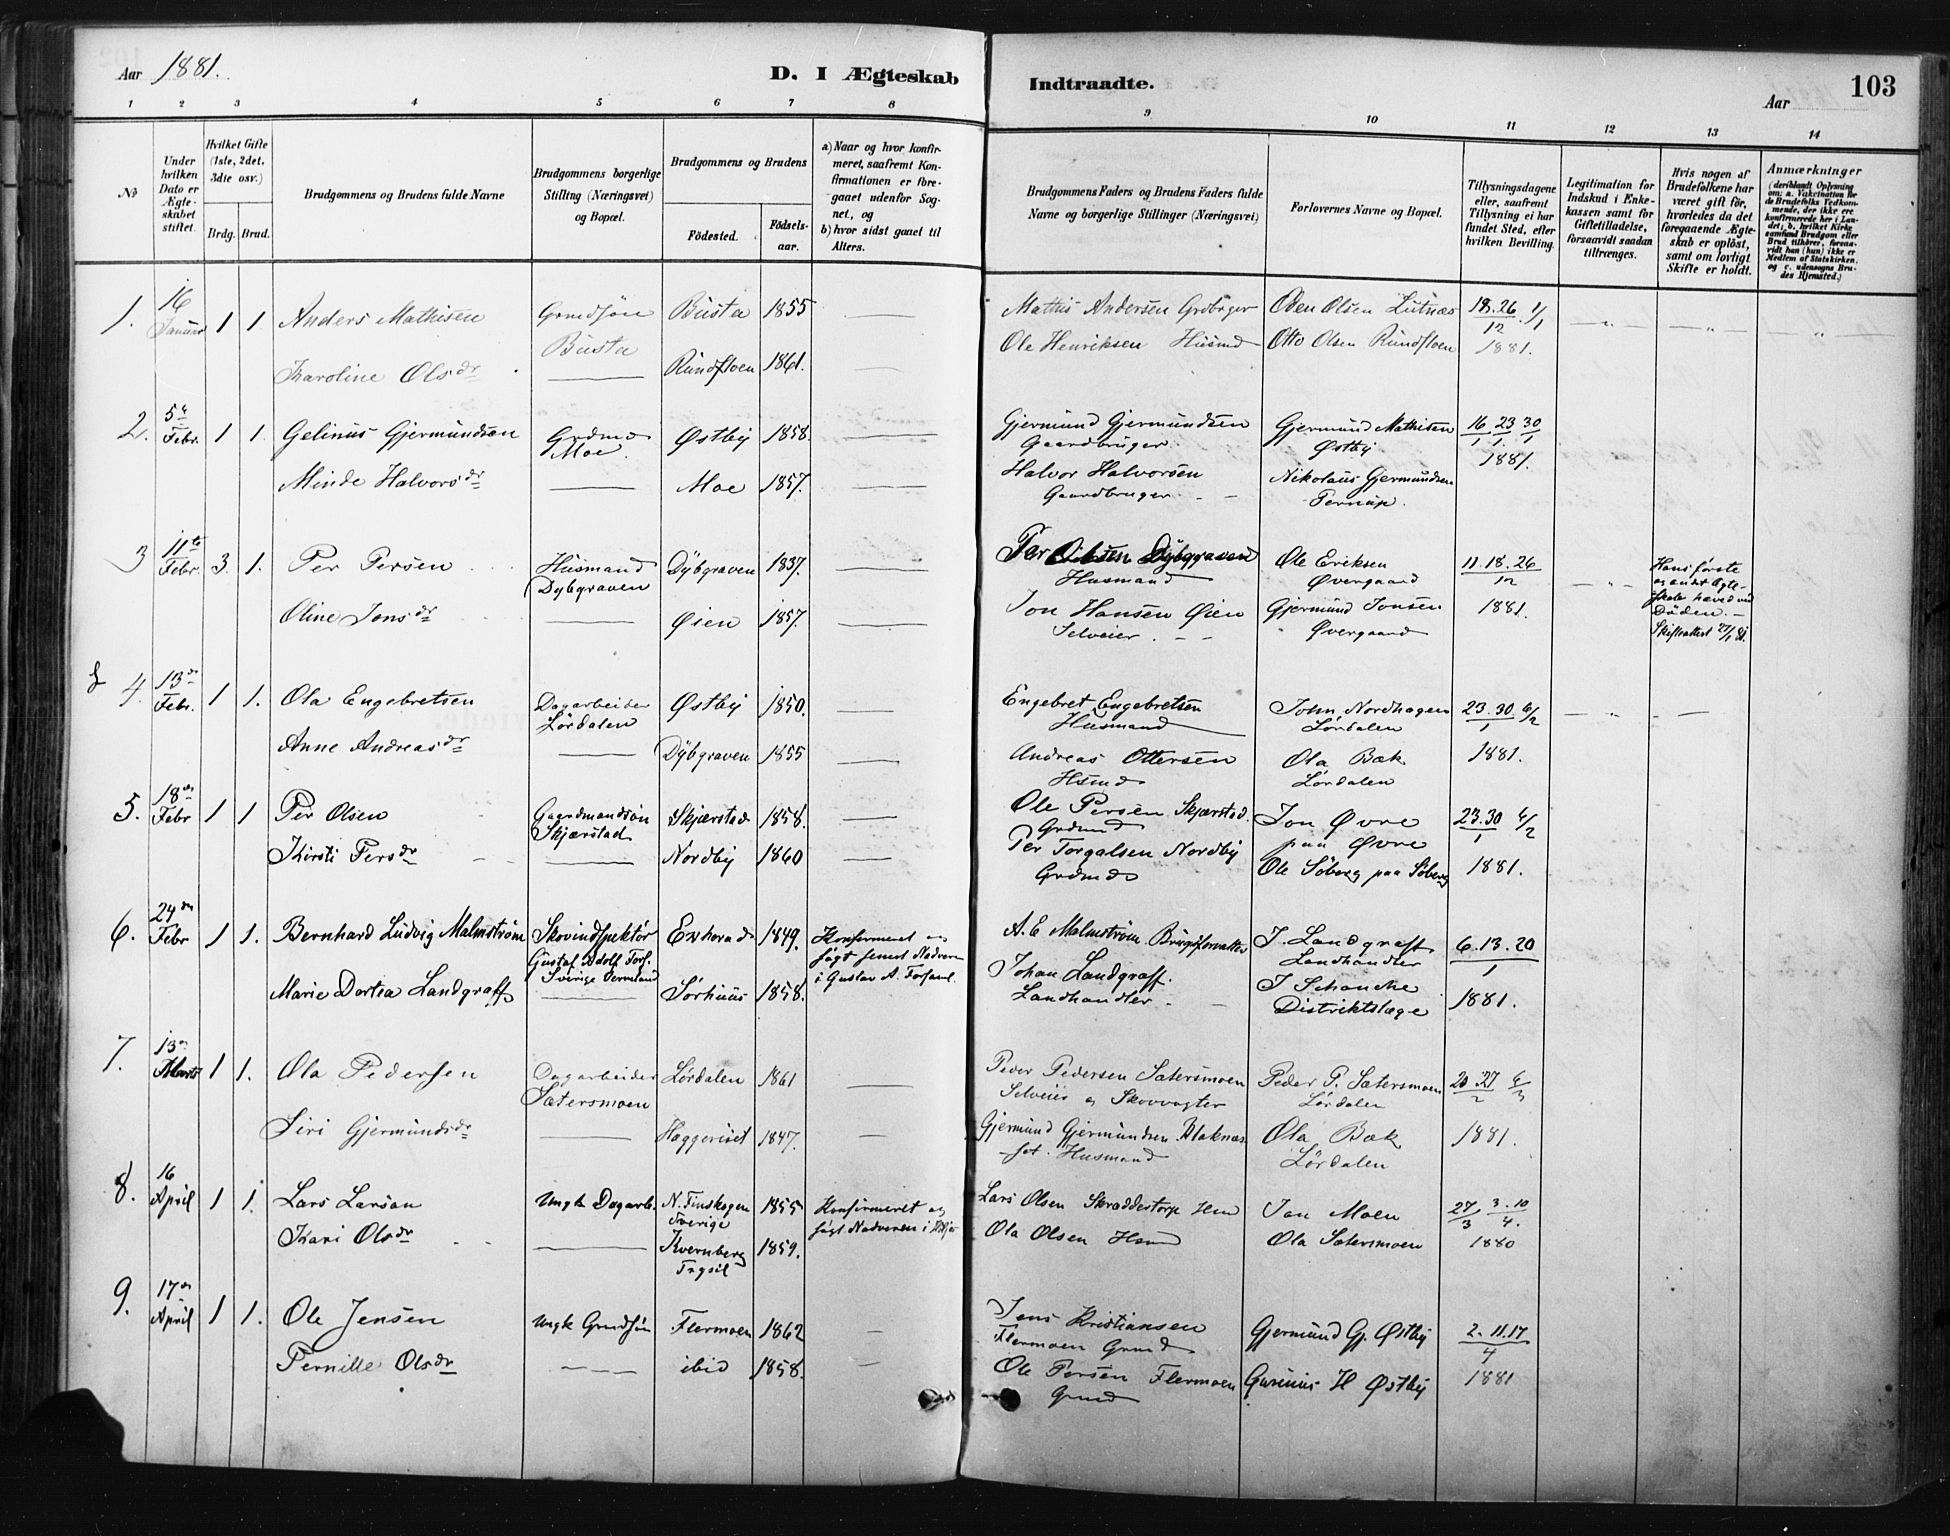 Aar 1881.
D. I Ægteskab Indtraadte.
Aar
103
1 2 3 4 5 6 7 8 9 10 11 12 13 14
No
Under hvilken Dato er Ægteskabet stiftet.
Hvilket Gifte (1ste, 2det, 3die osv.)
Brdg. Brud.
Brudgommens og Brudens fulde Navne
Brudgommens borgerlige Stilling (Næringsvei) og Bopæl.
Brudgommens og Brudens
Fødested. Fødselsaar.
a) Naar og hvor konfirmeret, saafremt Konfirmationen er foregaaet udenfor Sognet, og
b) hvor sidst gaaet til Alters.
Brudgommens Faders og Brudens Faders fulde Navne og borgerlige Stillinger (Næringsvei)
Forlovernes Navne og Bopæl.
Tillysningsdagene eller, saafremt Tillysning ei har fundet Sted, efter hvilken Bevilling.
Legitimation for Indskud i Enkekassen samt for Giftetilladelse, forsaavidt saadan tiltrænges.
Hvis nogen af Brudefolkene har været gift før, hvorledes da det foregaaende Ægteskab er opløst, samt om lovligt Skifte er holdt.
Anmærkninger
1. 16 Januar 1 1 Anders Mathisen Grmdsøn Busta Busta 1855 Mathis Andersen Grdbruger Oden Olsen Lutnæs 18. 26/12 1/1
Karoline Olsdr Rundfloen 1861. Ole Henriksen Husmd Otto Olsen Rundfloen 1881.
2. 5te Febr. 1 1. Gelinus Gjermundsøn Grdmd Moe. Østby 1858. Gjermund Gjermundsen Gaardbruger. Gjermund Mathisen Østby 16/1 23/1 30/1
Minde Halvorsdr Moe 1857. Halvor Halvorsen Gaardbruger. Nikolaus Gjermundsen 1881.
3 11te Febr. 3. 1. Per Persen Husmand Dybgraven Dybgraven 1837. Per Dybgraven Husmand Ole Eriksen Øvergaard 11. 18. 26/12
Hans første og andet Ægteskab hæved ved Døden. Skifteattest 27/1 81.
Oline Jonsdr Øien 1857. Jon Hansen Øien Selveier. Gjermund Jonsen Øvergaard 1881.
4. 13de Febr. 1 1. Ola Engebretsen Dagarbeider Lørdalen Østby 1850. Engebret Engebretsen Husmand John Nordhagen Lørdalen 23. 30/1 6/2
Anne Andreasdr Dybgraven 1855 Andreas Ottersen Hsmd Ola Bæk Lørdalen 1881.
5. 18de Febr 1 1 Per Olsen Gaardmandsøn Skjærstad Skjærstad 1858. Ole Persen Skjærstad. Grdmd Jon Øvre paa Øvre 23. 30/1 6/2
Kirsti Persdr Nordby 1860 Per Torgalsen Nordby Grdmd Ole Søberg paa Søberg 1881.
6. 24de Febr 1 1. Bernhard Ludvig Malmstrøm Skovindspektør Gustaf Adolf Fors. Sverige Vermland 1849. Konfirmeret og søgt senest Nadveren i Gustav A. Forsaml. A. E Malmstrøm Brugsforvalter J. Landgraff Landhandler 6. 13. 20/1
Marie Dortea Landgraff Sørhuus 1858. Johan Landgraff. Landhandler J Schancke Distriktslæge 1881.
7. 13de Marts 1 1. Ola Pedersen Dagarbeider Sætersmoen Lørdalen 1861 Peder Pedersen Sætersmoen Selveier og Skovvogter Peder P. Sætersmoen Lørdalen 20. 27/2 6/3
Siri Gjermundsdr Haggeriset 1847. Gjermund Gjermundsen Husmand Ola Bæk Lørdalen 1881.
8. 16 April 1 1. Lars Larsøn Ungk Dagarb. N. Finskogen Sverige 1855 Konfirmeret og søgt Nadveren i Lars Olsen Skraddestorp Hsm Jon Moen 27/3 3. 10/4.
Kari Olsdr Kvernberg Trysil 1859. Ola Olsen Hsmd Ola Sætersmoen 1880
9. 17de April 1 1. Ole Jensen Ungk Grmdsøn Flermoen 1862 Jens Kristiansen Flermoen Grmd Gjermund Gj. Østby 2. 11. 17/4
Pernille Olsdr ibid 1858. Ole Persen Flermoen Grmd H Østby 1881